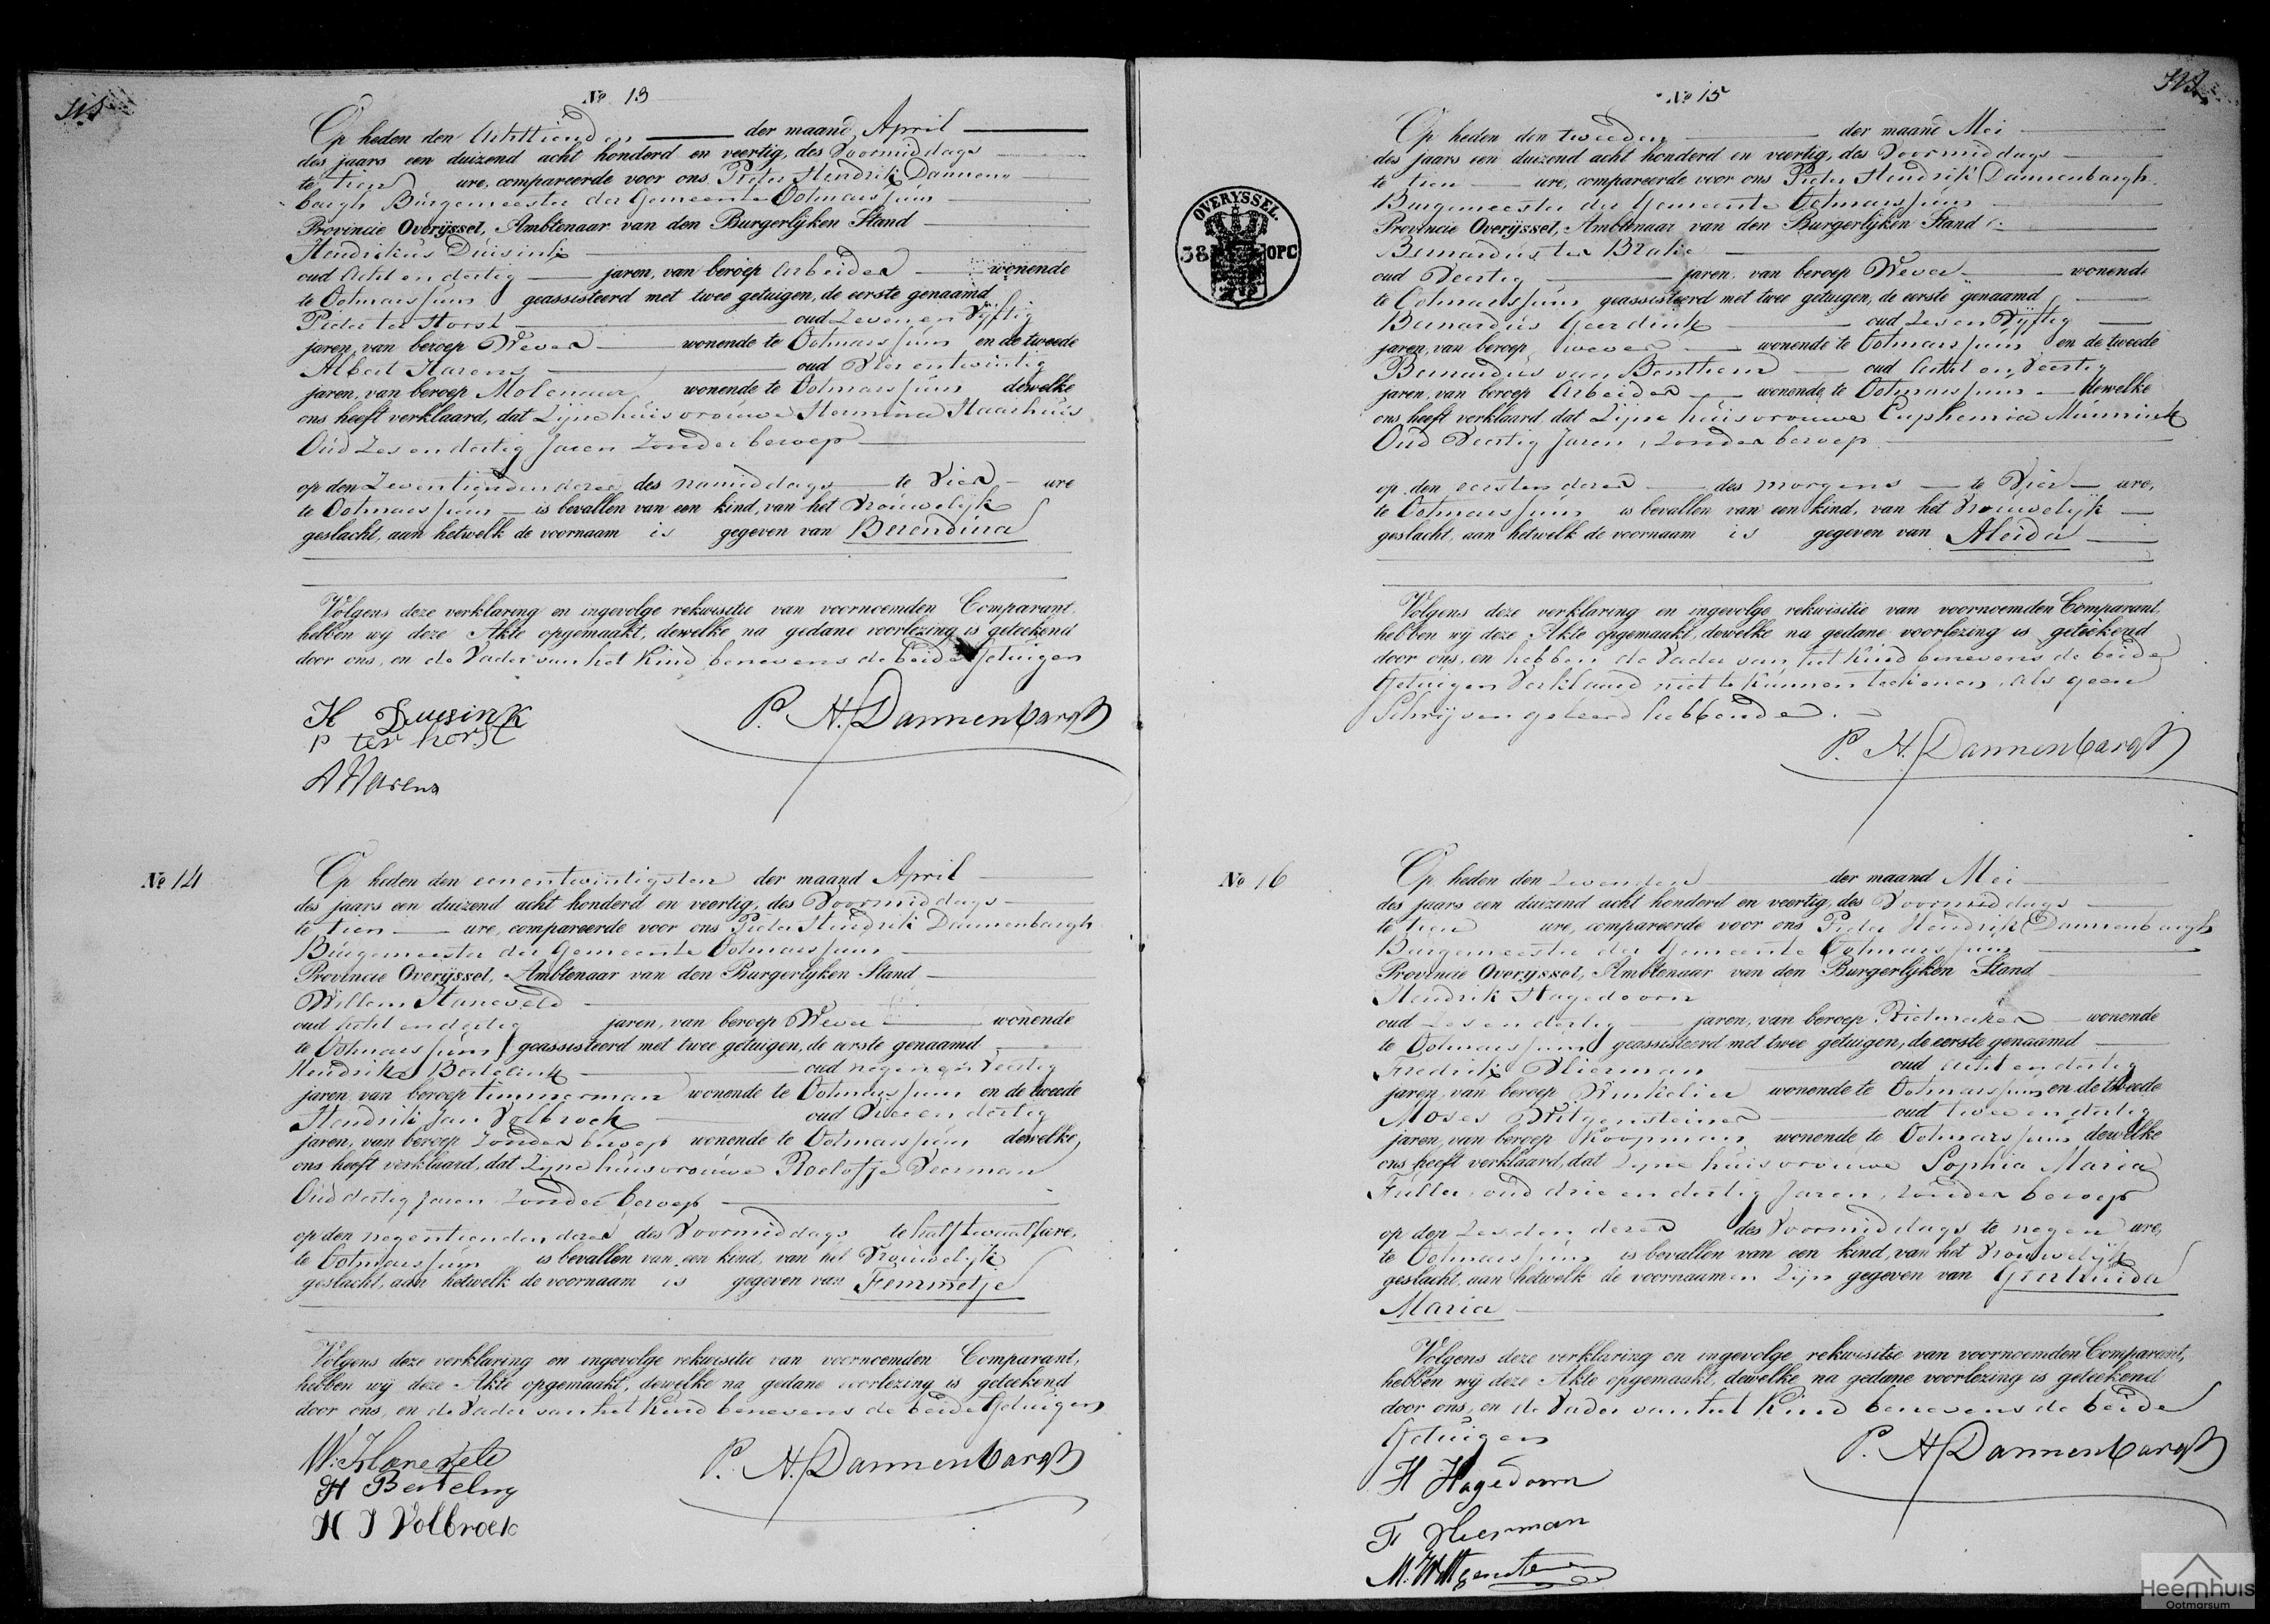 № 13
Op heden den Achttienden der maand April
des jaars een duizend acht honderd en veertig, des Voormiddags
te tien ure, compareerde voor ons Pieter Hendrik Dannen
bargh Burgemeester der Gemeente Ootmarssum
Provincie Overijssel, Ambtenaar van den Burgerlijken Stand
Hendrikus Duisink
oud Acht en dertig jaren, van beroep Arbeider wonende
te Ootmarssum geassisteerd met twee getuigen, de eerste genaamd
Pieter ter Horst oud Zeven en Vijftig
jaren, van beroep Wever wonende te Ootmarssum en de tweede
Albert Harens oud Vier en twintig
jaren, van beroep Molenaar wonende te Ootmarssum dewelke
ons heeft verklaard, dat Zijne huisvrouwe Hermina Haarhuis
Oud Zes en dertig Jaren Zonder beroep
op den Zeventienden dezer des namiddags te Vier ure
te Ootmarssum is bevallen van een kind, van het Vrouwelijk
geslacht, aan hetwelk de voornaam is gegeven van Berendina
Volgens deze verklaring en ingevolge rekwisitie van voornoemden Comparant,
hebben wij deze Akte opgemaakt, dewelke na gedane voorlezing is geteekend
door ons, en de Vader van het Kind benevens de beide Getuigen
H Duusink P. H. Dannenbargh
P ter horst
A Harens
№ 14
Op heden den eenentwintigsten der maand April
des jaars een duizend acht honderd en veertig, des Voormiddags
te tien ure, compareerde voor ons Pieter Hendrik Dannenbargh
Burgemeester der Gemeente Ootmarssum
Provincie Overijssel, Ambtenaar van den Burgerlijken Stand
Willem Haneveld
oud Acht en dertig jaren, van beroep Wever wonende
te Ootmarssum geassisteerd met twee getuigen, de eerste genaamd
Hendrik Bertelink oud negen en Veertig
jaren van beroep timmerman wonende te Ootmarssum en de tweede
Hendrik Jan Volbroek oud Twee en dertig
jaren, van beroep Zonder beroep wonende te Ootmarssum dewelke
ons heeft verklaard, dat Zijne huisvrouwe Roelofje Veerman
Oud dertig Jaren Zonder beroep
op den negentienden dezer des Voormiddags te half twaalf ure,
te Ootmarssum is bevallen van een kind, van het Vrouwelijk
geslacht, aan hetwelk de voornaam is gegeven van Femmetje
Volgens deze verklaring en ingevolge rekwisitie van voornoemden Comparant,
hebben wij deze Akte opgemaakt, dewelke na gedane voorlezing is geteekend
door ons, en de Vader van het Kind benevens de beide Getuigen
W. Haneveld P. H. Dannenbargh
H Berteling
H J Volbroek
№ 15
OVERYSSEL.
38 OPC
Op heden den tweeden der maand Mei
des jaars een duizend acht honderd en veertig, des Voormiddags
te tien ure, compareerde voor ons Pieter Hendrik Dannenbargh
Burgemeester der Gemeente Ootmarssum
Provincie Overijssel, Ambtenaar van den Burgerlijken Stand
Bernardus ter Brake
oud Veertig jaren, van beroep Wever wonende
te Ootmarssum geassisteerd met twee getuigen, de eerste genaamd
Bernardus Geerdink oud Zes en Vijftig
jaren, van beroep wever wonende te Ootmarssum en de tweede
Bernardus van Benthem oud Acht en Veertig
jaren, van beroep Arbeider wonende te Ootmarssum dewelke
ons heeft verklaard, dat Zijne huisvrouwe Euphemia Munnink
Oud Veertig Jaren, Zonder beroep
op den eersten dezer des morgens te Vier ure,
te Ootmarssum is bevallen van een kind, van het Vrouwelijk
geslacht, aan hetwelk de voornaam is gegeven van Aleida
Volgens deze verklaring en ingevolge rekwisitie van voornoemden Comparant,
hebben wij deze Akte opgemaakt, dewelke na gedane voorlezing is geteekend
door ons, en hebben de Vader van het Kind benevens de beide
Getuigen Verklaard niet te kunnen teekenen als geen
Schrijven geleerd hebbende.
P. H. Dannenbargh
№ 16
Op heden den Zevenden der maand Mei
des jaars een duizend acht honderd en veertig, des Voormiddags
te tien ure, compareerde voor ons Pieter Hendrik Dannenbargh
Burgemeester der Gemeente Ootmarssum
Provincie Overijssel, Ambtenaar van den Burgerlijken Stand
Hendrik Hagedoorn
oud Zes en dertig jaren, van beroep Rietmaker wonende
te Ootmarssum geassisteerd met twee getuigen, de eerste genaamd
Fredrik Vlierman oud Acht en dertig
jaren, van beroep Winkelier wonende te Ootmarssum en de tweede
Moses Witgensteiner oud twee en dertig
jaren, van beroep Koopman wonende te Ootmarssum dewelke
ons heeft verklaard, dat Zijne huisvrouwe Sophia Maria
Fuller, oud drie en dertig Jaren, Zonder beroep
op den Zesden dezer des Voormiddags te negen ure,
te Ootmarssum is bevallen van een kind, van het Vrouwelijk
geslacht, aan hetwelk de voornaamen Zijn gegeven van Geertruida
Maria
Volgens deze verklaring en ingevolge rekwisitie van voornoemden Comparant,
hebben wij deze Akte opgemaakt, dewelke na gedane voorlezing is geteekend
door ons, en de Vader van het Kind benevens de beide
Getuigen P. H. Dannenbargh
H Hagedoorn
F Vlierman
Heemhuis
Ootmarsum